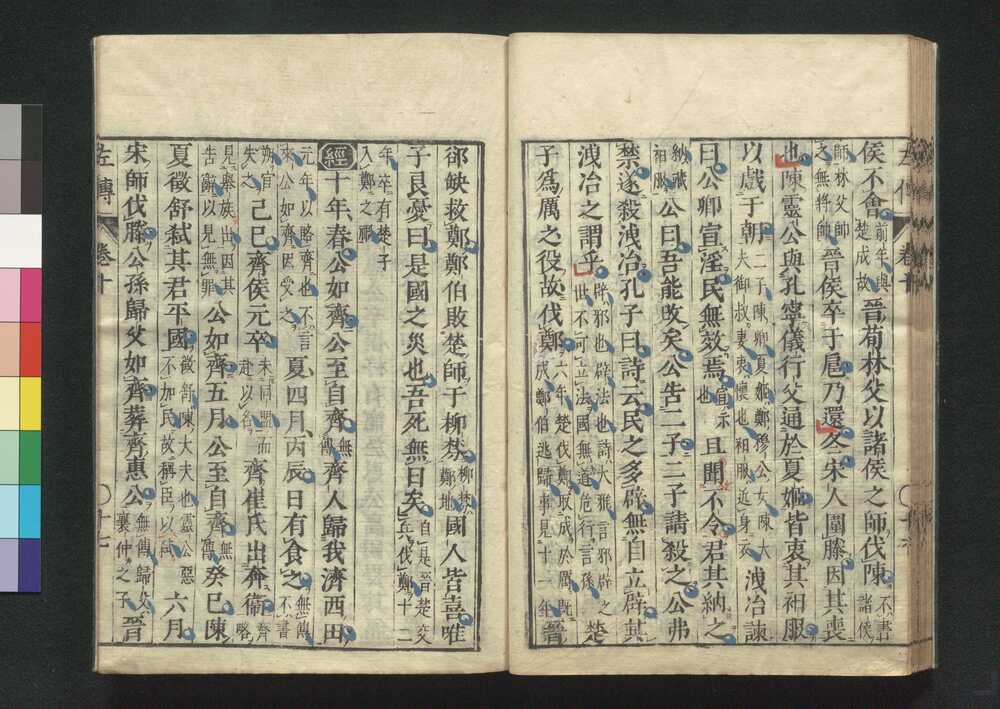 侯不會前年與楚成故晉荀林父以諸侯之師伐陳不書諸侯
師林父帥之無將帥晉侯卒于扈乃還冬宋人圍滕因其喪
也陳靈公與孔寧儀行父通於夏姬皆衷其衵服
以戲于朝二子陳卿夏姬鄭穆公女陳大夫御叔妻衷懷也衵服近身衣洩冶諫
曰公卿宣淫民無效焉宣示也且聞不令君其納之
納藏衵服公曰吾能改矣公告二子二子請殺之公弗
禁遂殺洩冶孔子曰詩云民之多辟無自立辟其
洩冶之謂乎辟邪也辟法也詩大雅言邪辟之世不可立法國無道危行言孫楚
子爲厲之役故伐鄭六年楚伐鄭取成於厲既成鄭伯逃歸事見十一年晉
郤缺救鄭鄭伯敗楚師于柳棼柳棼鄭地國人皆喜唯
子良憂曰是國之災也吾死無日矣自是晉楚交兵伐鄭十二
年卒有楚子入鄭之禍
經十年春公如齊公至自齊無傳齊人歸我濟西田
元年以賂齊也不言來公如齊因受之夏四月丙辰日有食之無傳不書
朔官失之己巳齊侯元卒未同盟而赴以名齊崔氏出奔衛齊略
見舉族出因其告辭以見無罪公如齊五月公至自齊無傳癸巳陳
夏徵舒弒其君平國徵舒陳大夫也靈公惡不加民故稱臣以弒六月
宋師伐滕公孫歸父如齊葬齊惠公無傳歸父襄仲之子晉
左傳
卷十
十七